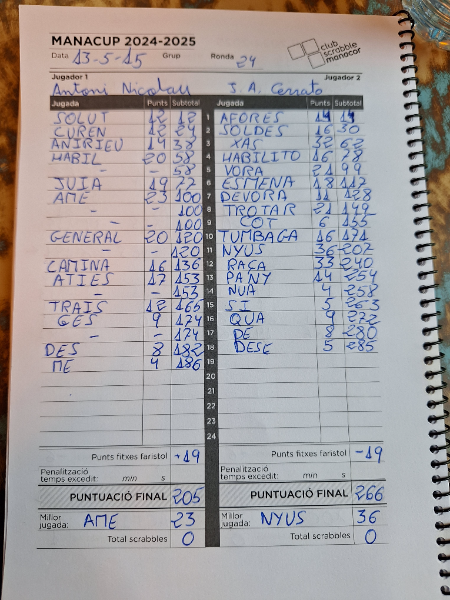 MANACUP 2024-2025
club scrabble manacor
Data 13-5-15 Grup Ronda 24
Jugador 1 Jugador 2
Antoni Nicolau J. A. Cerrato
Jugada Punts Subtotal Jugada Punts Subtotal
SOLUT 12 12 1 AFORES 14 14
CUREN 12 24 2 SOLDES 16 30
ANIRIEU 14 38 3 XAS 32 62
HABIL 20 58 4 HABILITO 16 78
- - 58 5 VORA 21 99
JUIA 19 77 6 ESMENA 18 117
AME 23 100 7 DEVORA 11 128
- - 100 8 TROTAR 21 149
- - 100 9 COT 6 155
GENERAL 20 120 10 TUMBAGA 16 171
- - 120 11 NYUS 36 207
CAMINA 16 136 12 RACA 33 240
ATIES 17 153 13 PANY 14 254
- - 153 14 NUA 4 258
TRAIS 12 165 15 SI 5 263
GES 9 174 16 QUA 9 272
- - 174 17 DE 8 280
DES 8 182 18 DESE 5 285
ME 4 186 19
20
21
22
23
24
Punts fitxes faristol +19 Punts fitxes faristol -19
Penalització temps excedit: min s Penalització temps excedit: min s
PUNTUACIÓ FINAL 205 PUNTUACIÓ FINAL 266
Millor jugada: AME 23 Millor jugada: NYUS 36
Total scrabbles 0 Total scrabbles 0